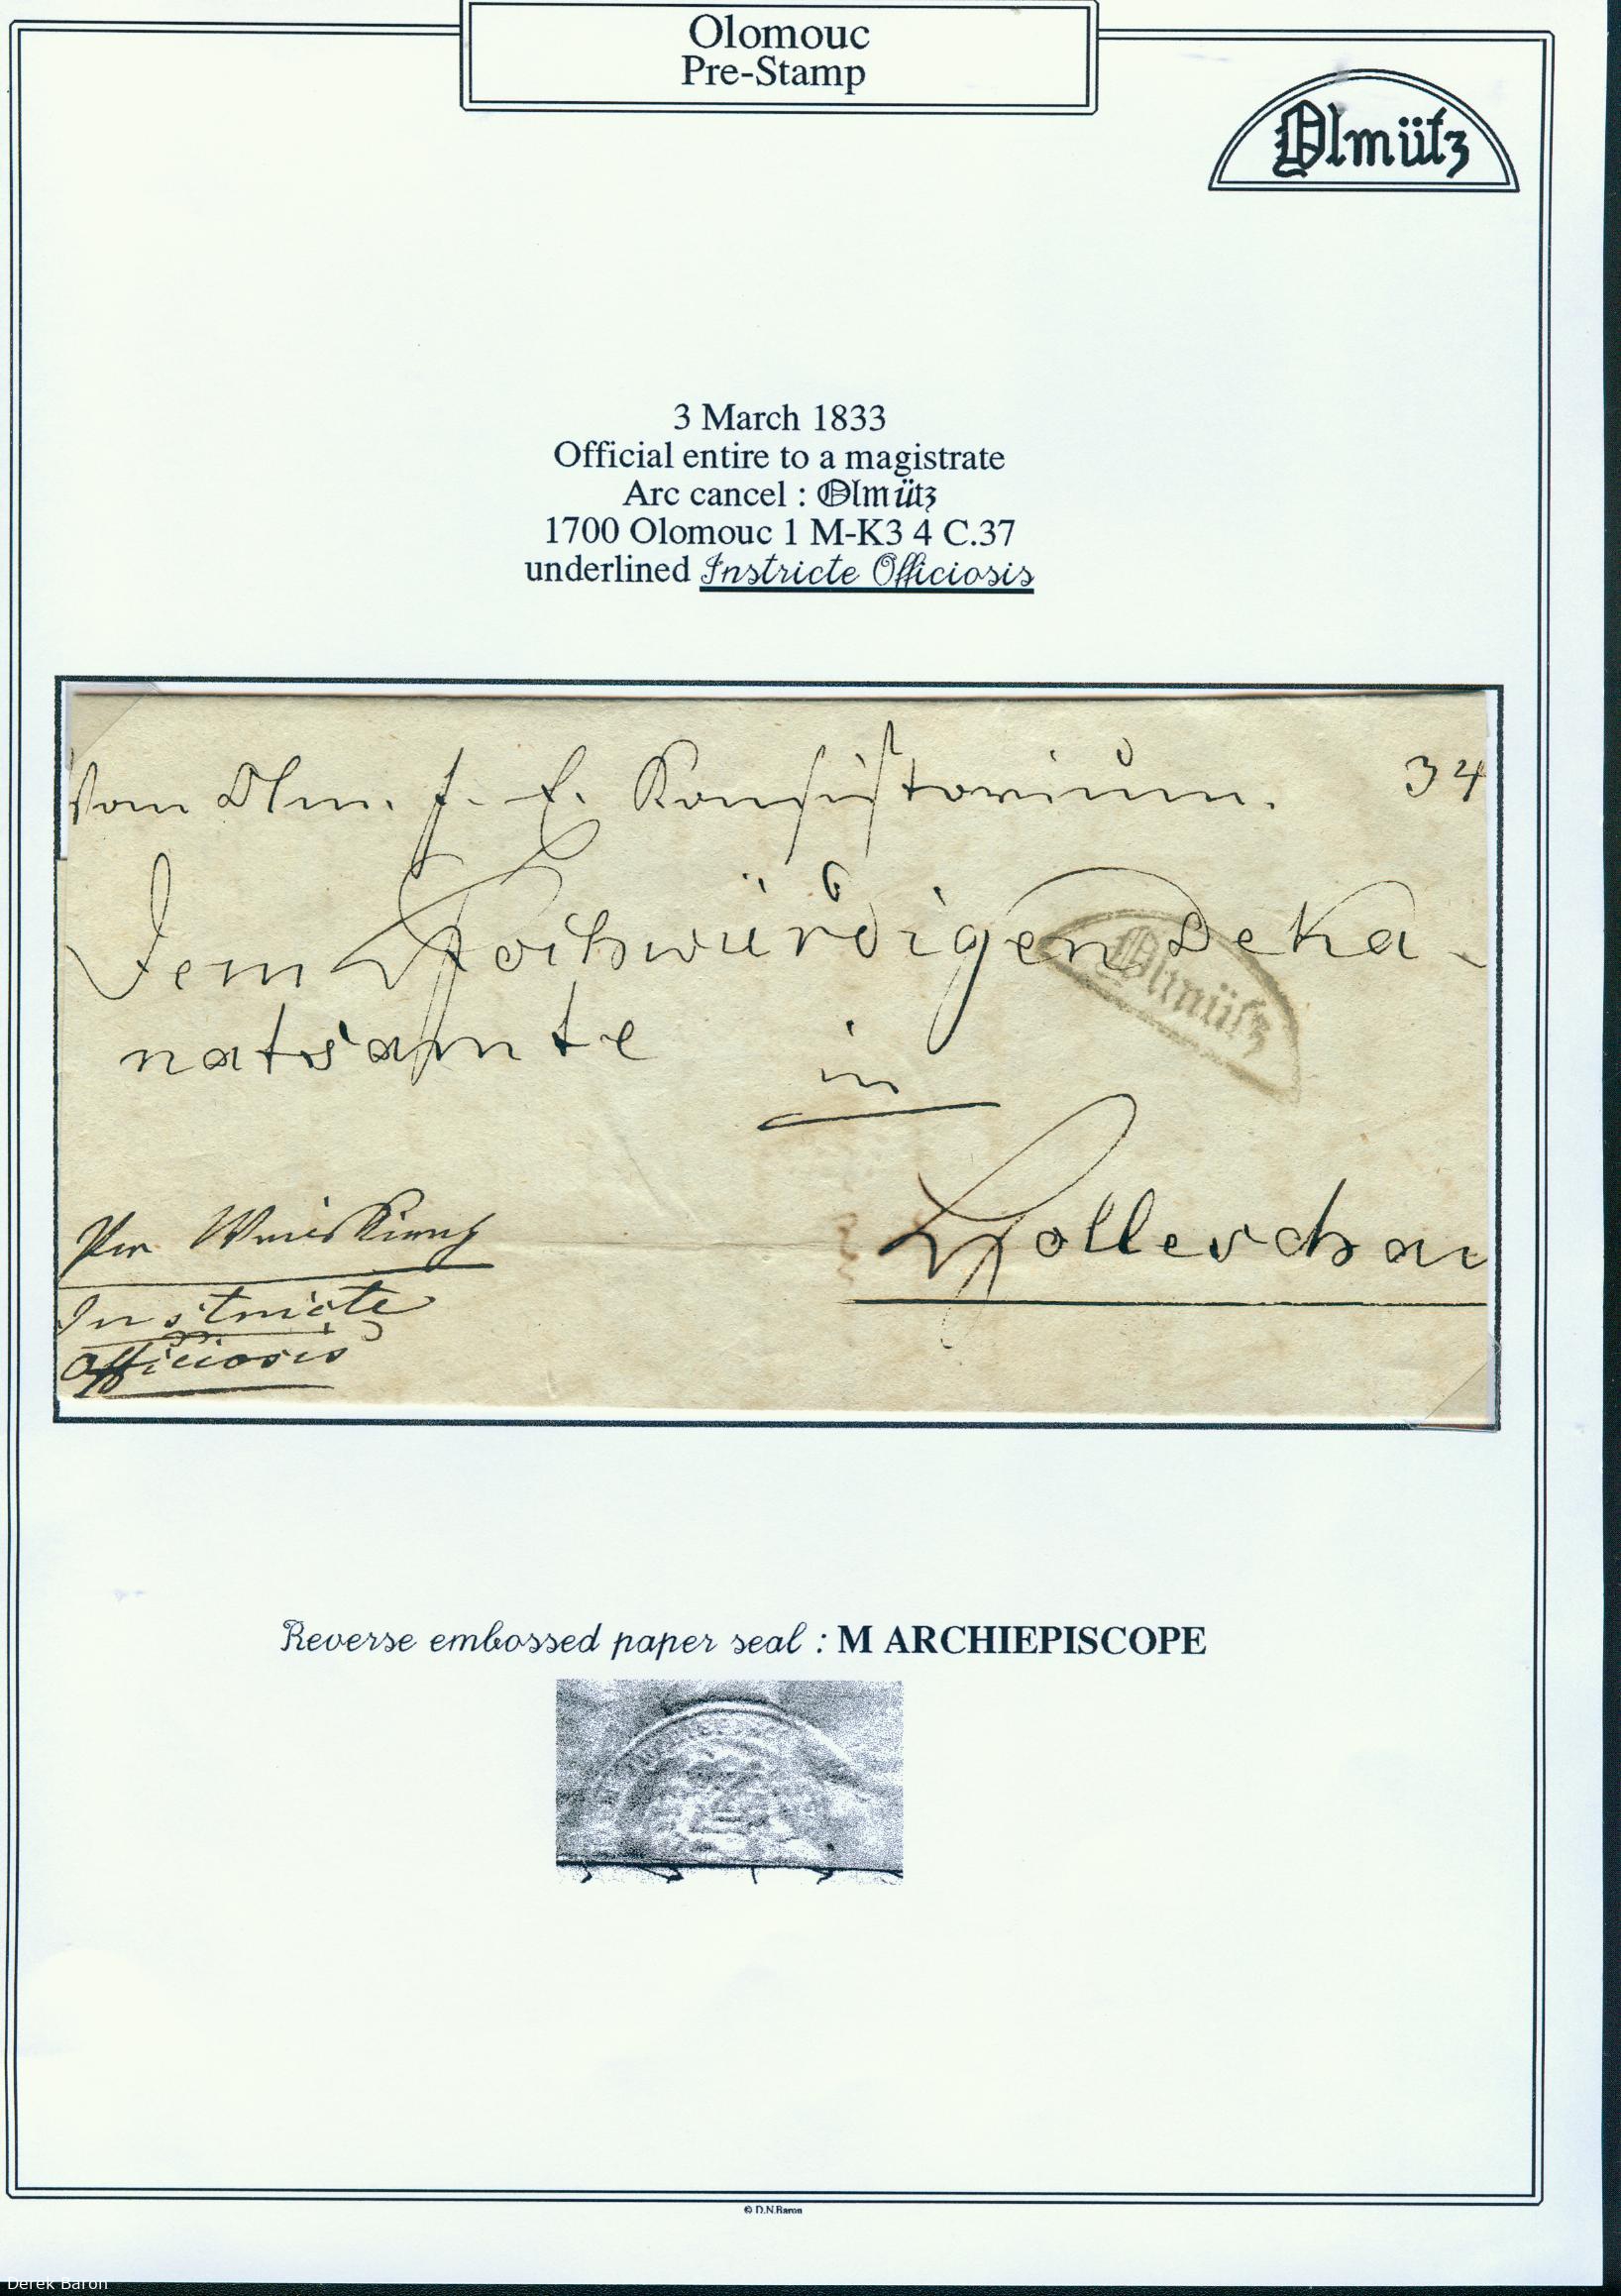 Olomouc
Pre-Stamp
Olmütz
3 March 1833
Official entire to a magistrate
Arc cancel : Olmütz
1700 Olomouc 1 M-K3 4 C.37
underlined Instricte Officiosis
Vom Olm. f. e. Konsistorium. 34
Dem Hochwürdigen Deka-
natsamte
Olmütz
in
Hollerschau
Per
Instricte
Officiosis
Reverse embossed paper seal : M ARCHIEPISCOPE
© D.N.Baron
Derek Baron